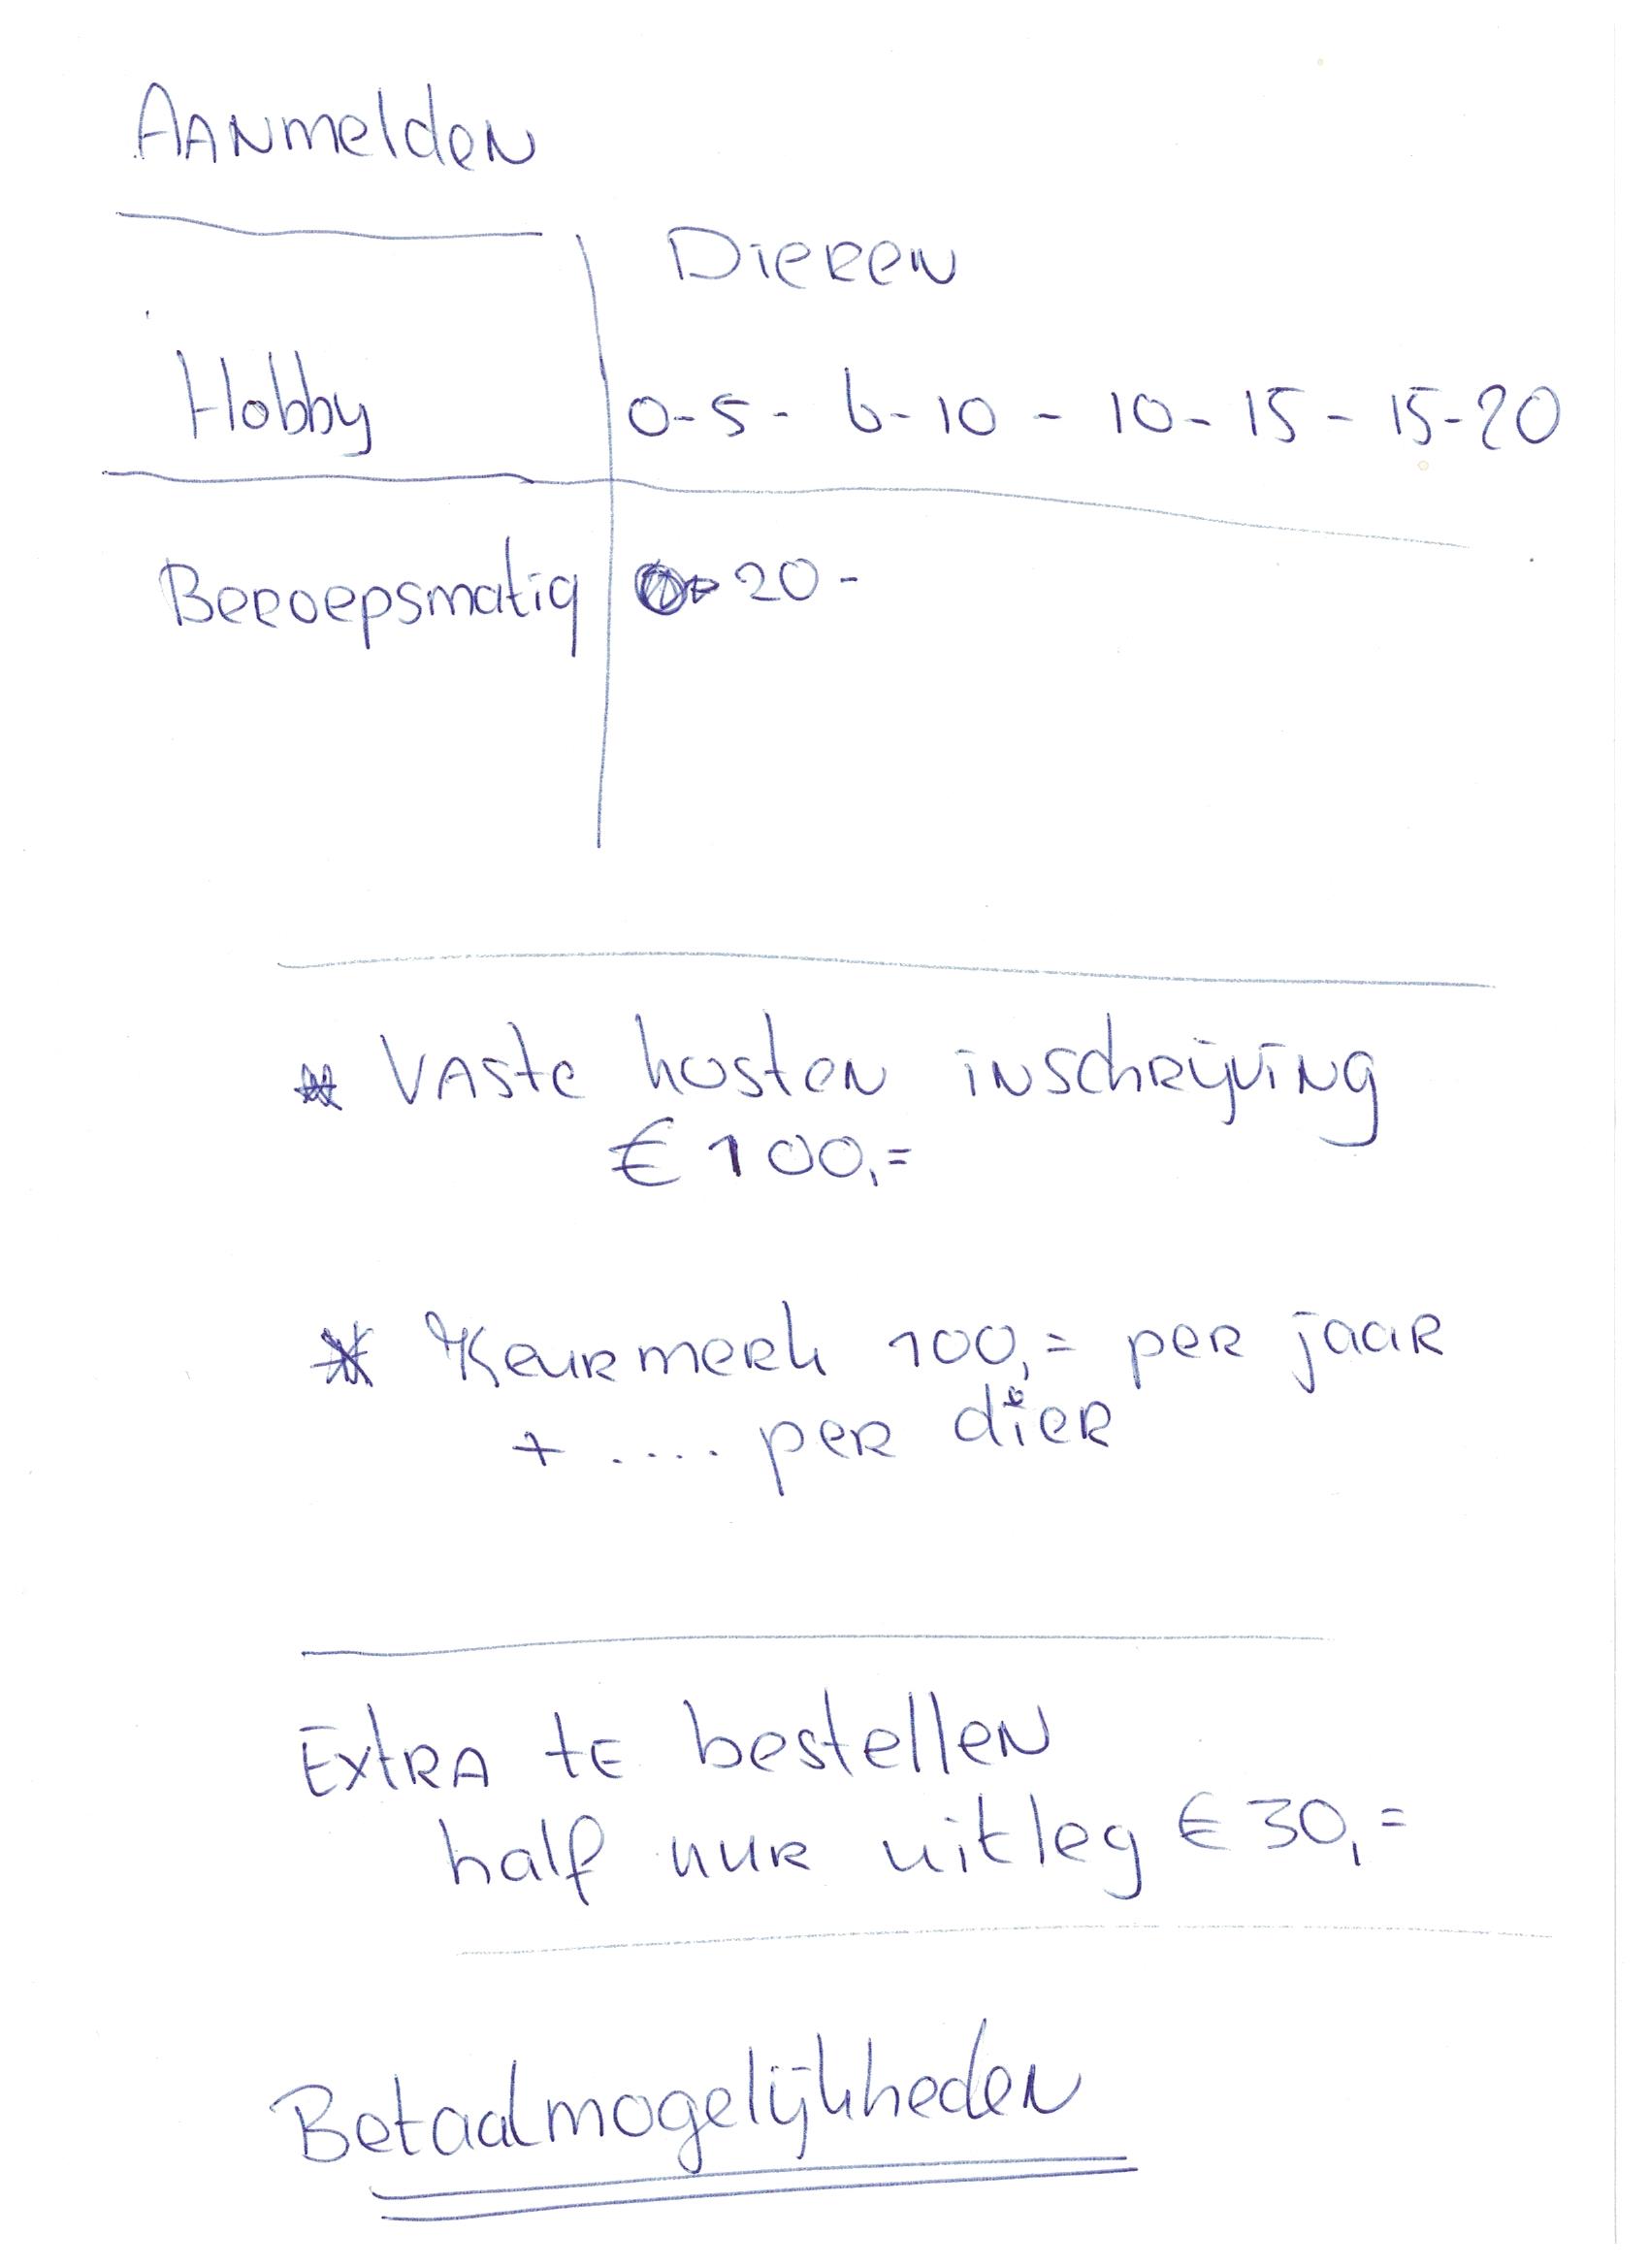 Aanmelden
Dieren
Hobby 0-5 - 6-10 - 10-15 - 15-20
Beroepsmatig 20 -
* Vaste kosten inschrijving
€ 100,=
* Keurmerk 100,= per jaar
+ .... per dier
Extra te bestellen
half uur uitleg € 30,=
Betaalmogelijkheden